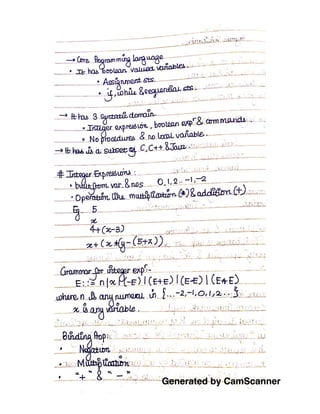 → Core Programming language
• It has boolean valued variables.
• Assignment sts.
• if, while & sequential sts.
→ It has 3 syntactic domain.
• Integer expression, boolean expⁿ & commands.
• No procedures & no local variable.
→ It has is a subset of C, C++ & Java
# Integer Expressions :
• built from var. & nos 0, 1, 2.. -1, -2
• Operation like multiplication (*) & addition (+)
Eg. 5
x
4+(x-3)
x+(x*(y-(5+x))
Grammar for integer expⁿ:-
E ::= n|x|(-E)|(E+E)|(E-E)|(E*E)
where n is any numeral in {...-2,-1,0,1,2...}
x is any variable.
Binding Prop:
• Negation
• Multiplication
• "+" & "-"
Generated by CamScanner